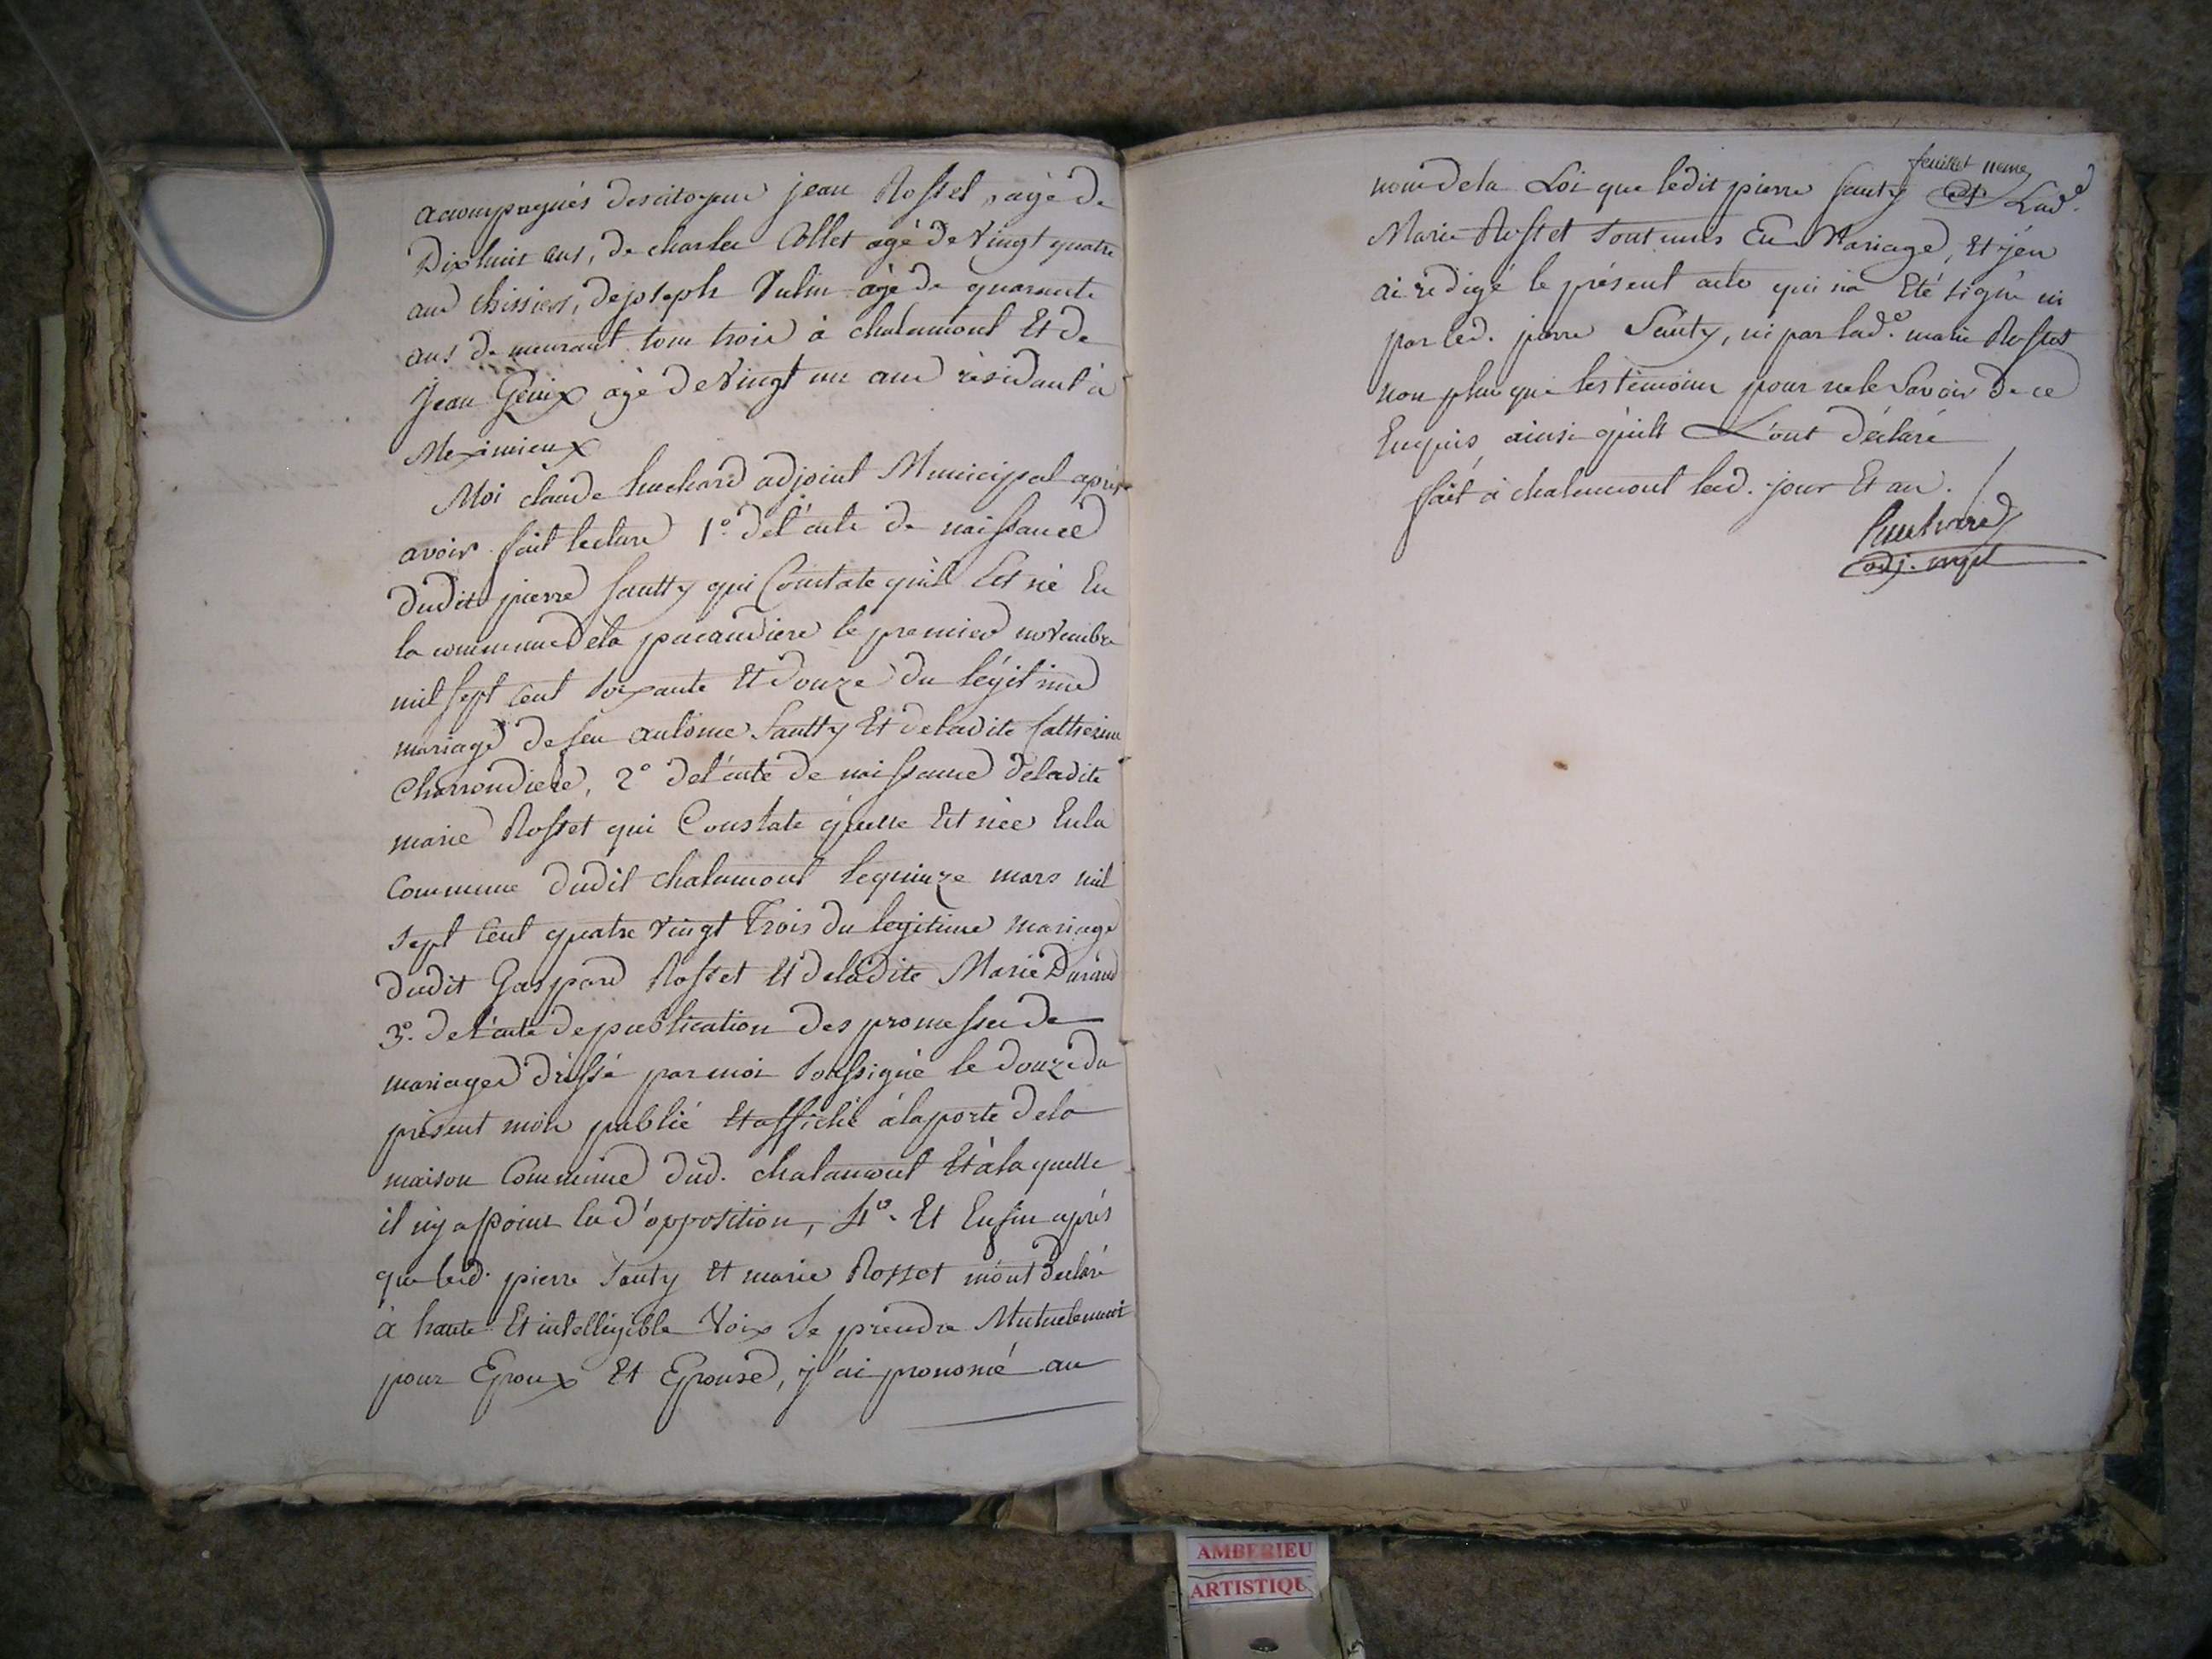 accompagnés descitoyens jean Rosset, agé de
Dixhuit ans, de charles Collet agé de Vingt quatre
ans, dejoseph Vulin agé de quarante
ans demeurant tous trois à chalamont Et de
Jean Genix agé deVingt un ans résidant à
Meximieux
Moi claude huchard adjoint Municipal aprés
avoir fait lecture 1º. del'acte de naissance
dudit pierre Sautty qui Constate qu'il Est né En
la commune dela pacaudiere le premier novembre
mil sept Cent soixante Et douze du légitime
mariage de feu antoine Sautty Et deladite Catherine
Charrondiere, 2º del'acte de naissance deladite
marie Rosset qui Constate qu'elle Est née Enla
Commune dudit chalamont lequinze mars mil
sept Cent quatre Vingt Trois du legitime mariage
dudit Gaspard Rosset Et deladite Marie Durand
3º. del'acte depublication des promesses de
mariages dréssé parmoi soussigné le douze du
présent mois publié Et affiché àlaporte dela
maison Commune dud. chalamont Et àlaquelle
il ny a point Eu d'opposition, 4º. Et Enfin aprés
que led. pierre Sauty Et marie Rosset m'ont declaré
à haute Et intelligible Voix se prendre Mutuelement
pour Epoux Et Epouse, j'ai prononcé au
feuillet neme
nom dela Loi que ledit pierre Sauty Et Lade.
Marie Rosset sont unis En Mariage, Et j'en
ai redigé le présent acte qui n'a Eté signé ni
par led. pierre Sauty, ni par lade. marie Rosset
non plus que les témoins pour nele Savoir de ce
Enquis, ainsi qu'ils L'ont déclaré
fait à chalamont led. jour Et an.
huchard
adj. mpl
AMBERIEU
ARTISTIQU